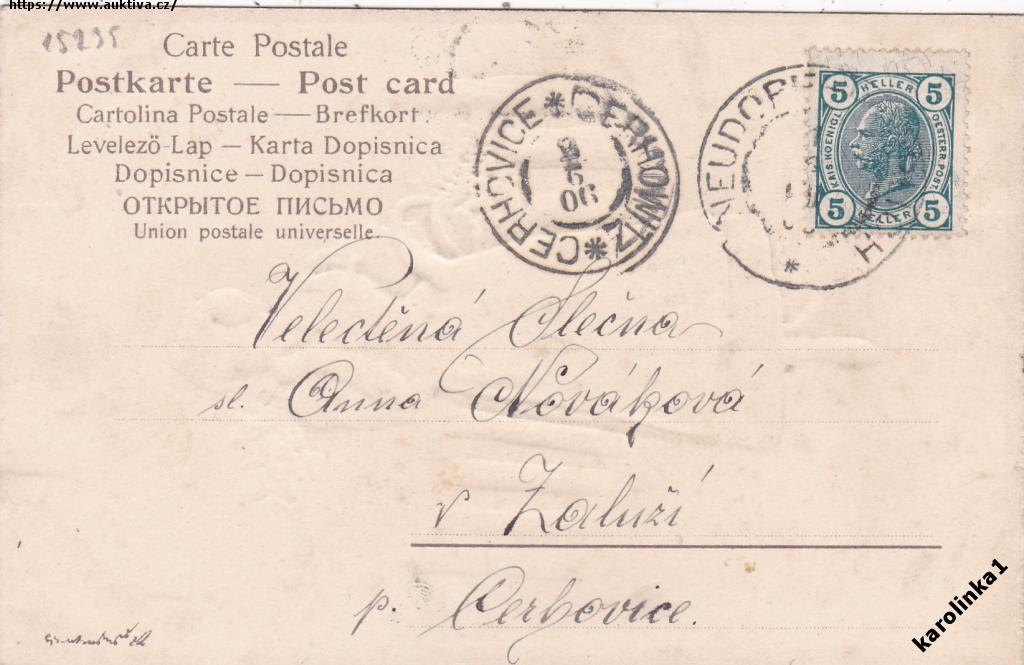 https://www.auktiva.cz/
15295
Carte Postale
Postkarte — Post card
Cartolina Postale — Brefkort.
Levelező-Lap — Karta Dopisnica
Dopisnice — Dopisnica
ОТКРЫТОЕ ПИСЬМО
Union postale universelle.
CERHOVICE * CERHOWITZ *
06
NEUDORF
*
5 HELLER 5
KAIS. KOENIGL. OESTERR. POST
5 HELLER 5
Velectěná Slečna
sl. Anna Nováková
v Zaluží
p. Cerhovice.
karolinka1